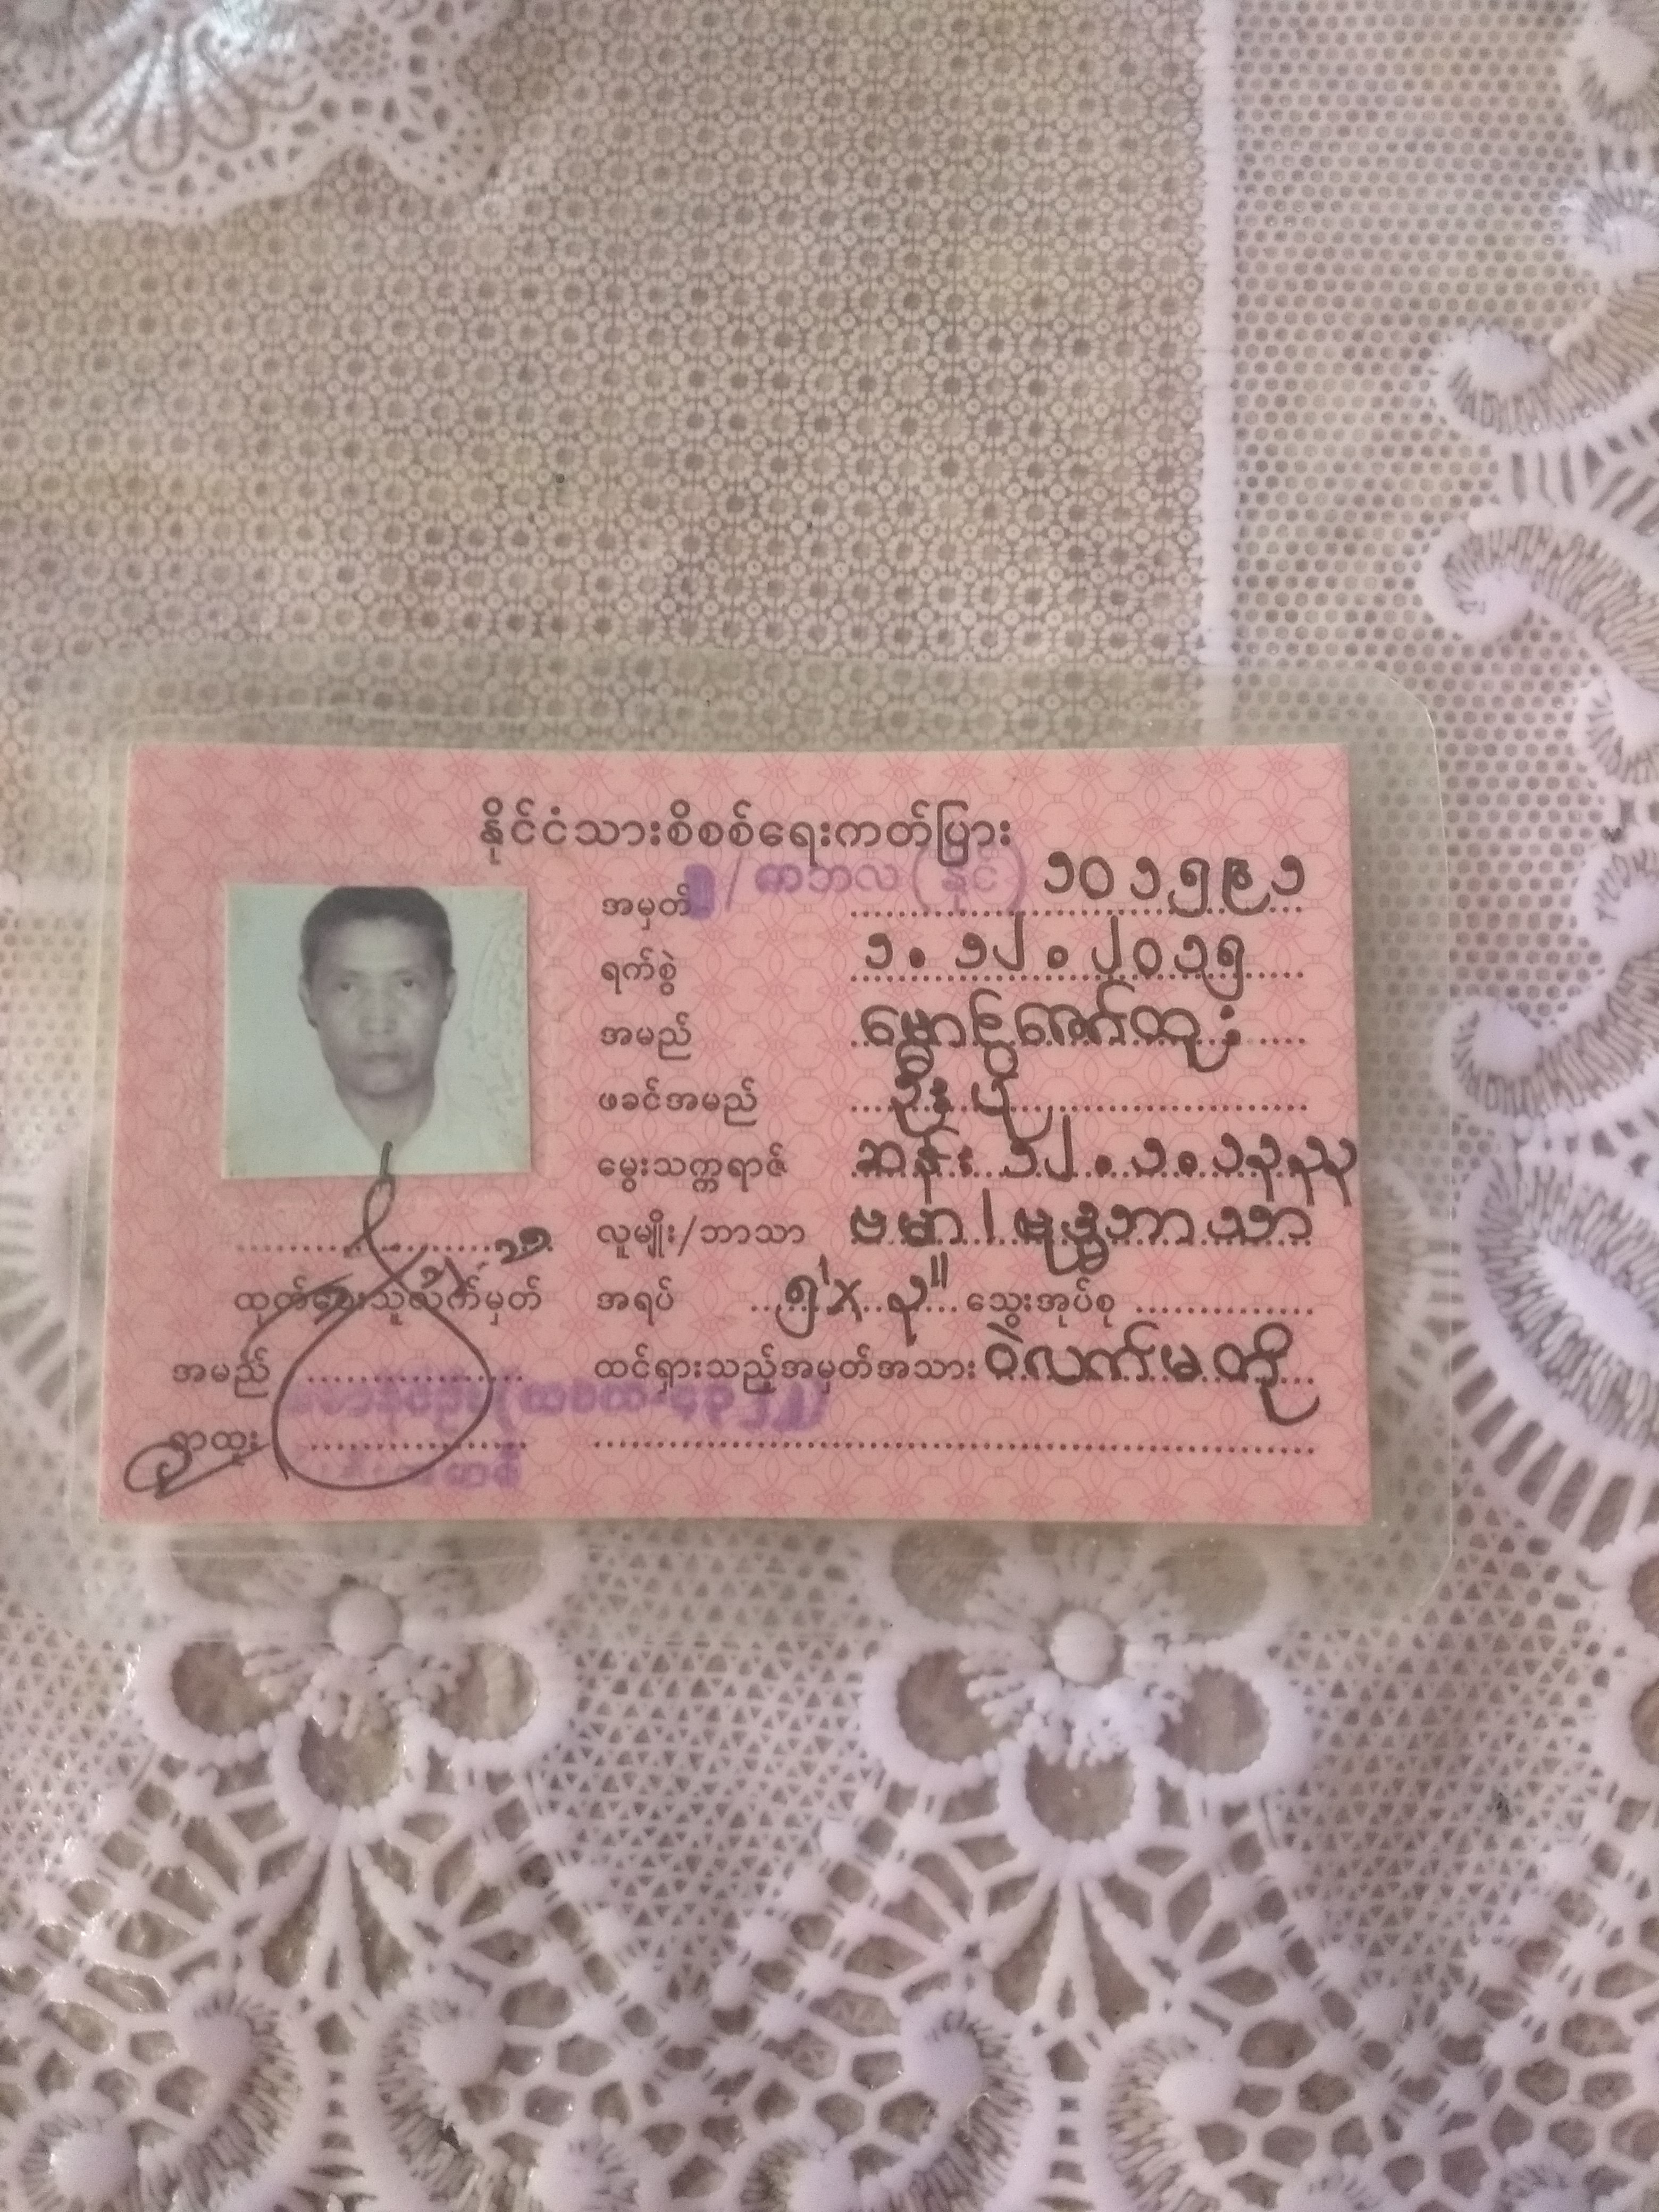 နိုင်ငံသားစိစစ်ရေးကတ်ပြား
အမှတ် / ကဘလ (နိုင်) ၁၀၁၅၉၁
ရက်စွဲ ၁.၁၂.၂၀၁၅
အမည် မောင်ဇော်ထူး
ဖခင်အမည် ဦး
မွေးသက္ကရာဇ် ၁၂.၁.၁၃
လူမျိုး/ဘာသာ ဗမာ/ဗုဒ္ဓဘာသာ
အရပ် ၅' x ၃" သွေးအုပ်စု
ထင်ရှားသည့်အမှတ်အသား ဝဲလက်မ
ထုတ်ပေးသူလက်မှတ်
အမည်
ရာထူး